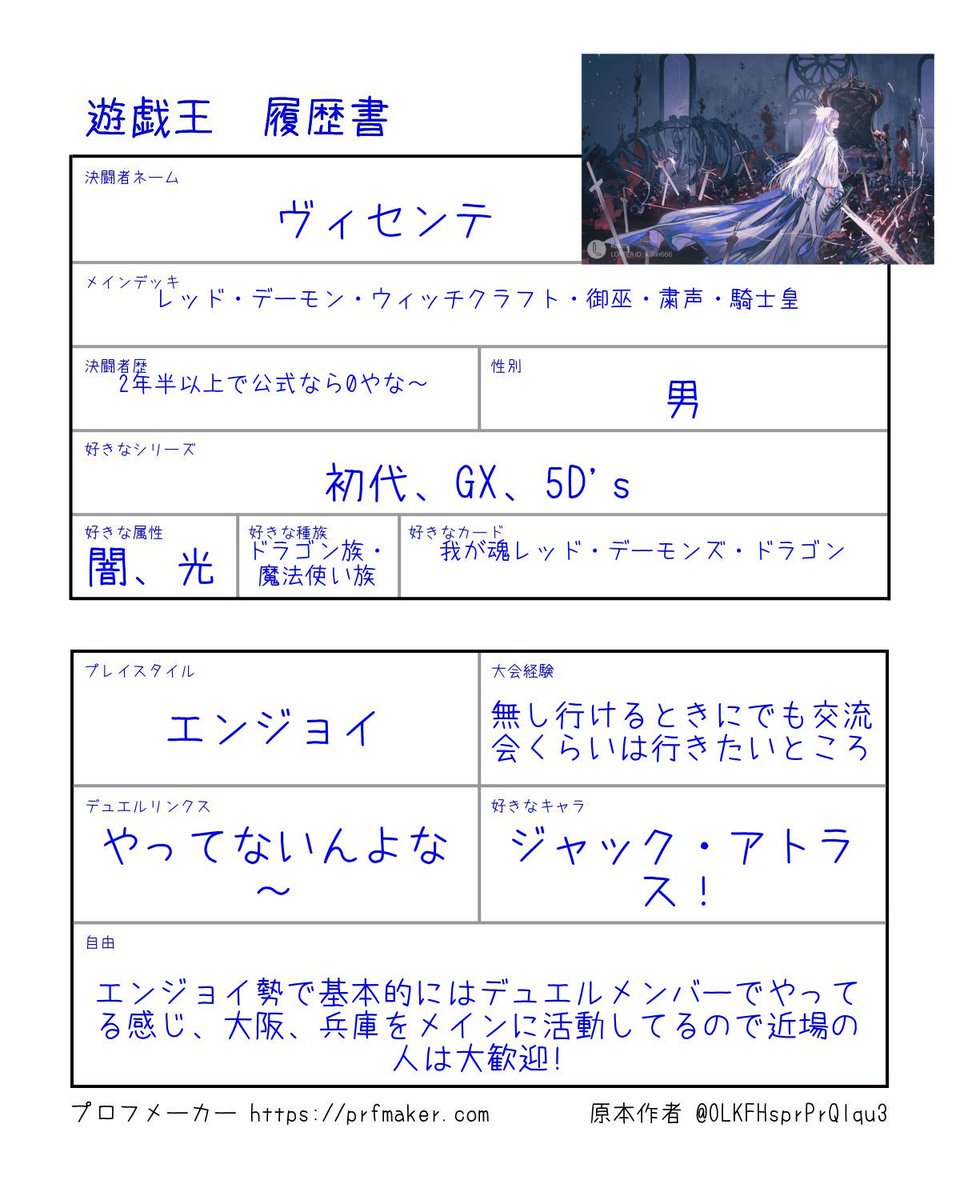 遊戯王　履歴書
決闘者ネーム
ヴィセンテ
メインデッキ
レッド・デーモン・ウィッチクラフト・御巫・粛声・騎士皇
決闘者歴
2年半以上で公式なら0やな～
性別
男
好きなシリーズ
初代、GX、5D's
好きな属性
闇、光
好きな種族
ドラゴン族・
魔法使い族
好きなカード
我が魂レッド・デーモンズ・ドラゴン
プレイスタイル
エンジョイ
大会経験
無し行けるときにでも交流
会くらいは行きたいところ
デュエルリンクス
やってないんよな
～
好きなキャラ
ジャック・アトラ
ス！
自由
エンジョイ勢で基本的にはデュエルメンバーでやって
る感じ、大阪、兵庫をメインに活動してるので近場の
人は大歓迎!
プロフメーカー https://prfmaker.com
原本作者 @OLKFHsprPrQlqu3